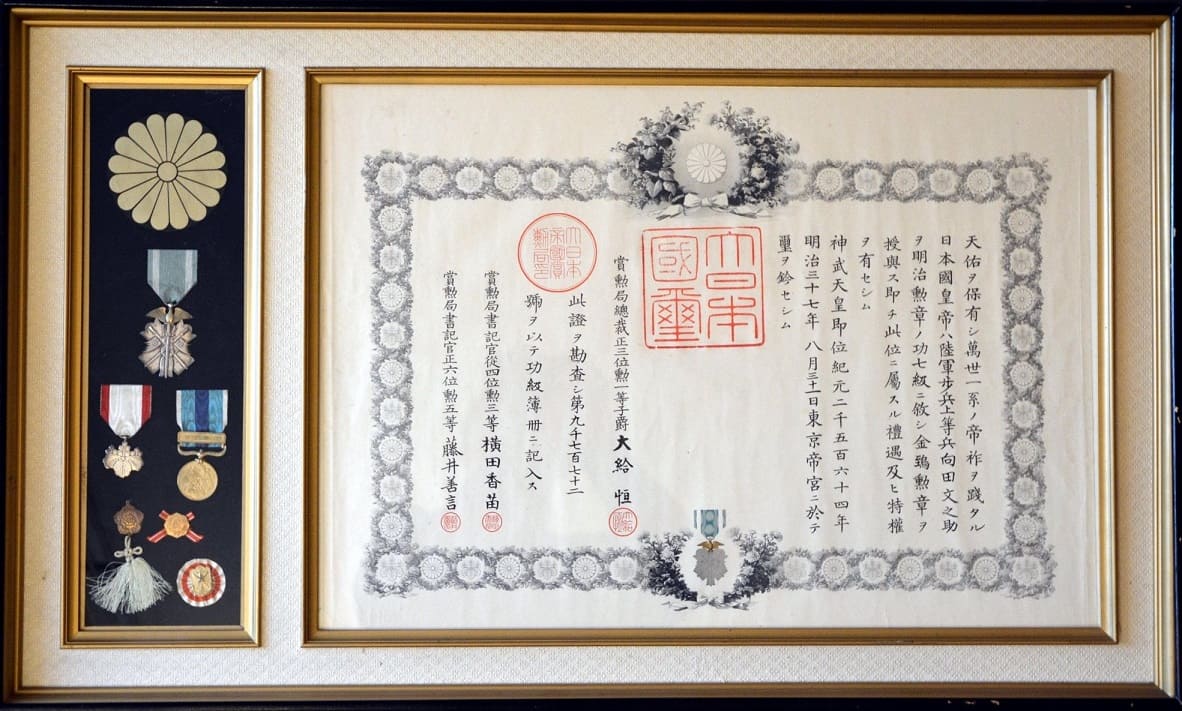 天佑ヲ保有シ萬世一系ノ帝祚ヲ踐タル
日本國皇帝ハ陸軍歩兵上等兵向田文之助
ヲ明治勲章ノ功七級ニ敘シ金鵄勲章ヲ
授與ス即チ此位ニ屬スル禮遇及ヒ特權
ヲ有セシム
神武天皇即位紀元二千五百六十四年
明治三十七年八月三十一日東京帝宮ニ於テ
璽ヲ鈐セシム
大日本
國璽
賞勲局總裁正三位勲一等子爵大給恒
此證ヲ勘査シ第九千七百七十二
號ヲ以テ功級簿册ニ記入ス
大日本
帝國賞
勲局印
賞勲局書記官從四位勲三等横田香苗
賞勲局書記官正六位勲五等藤井善言